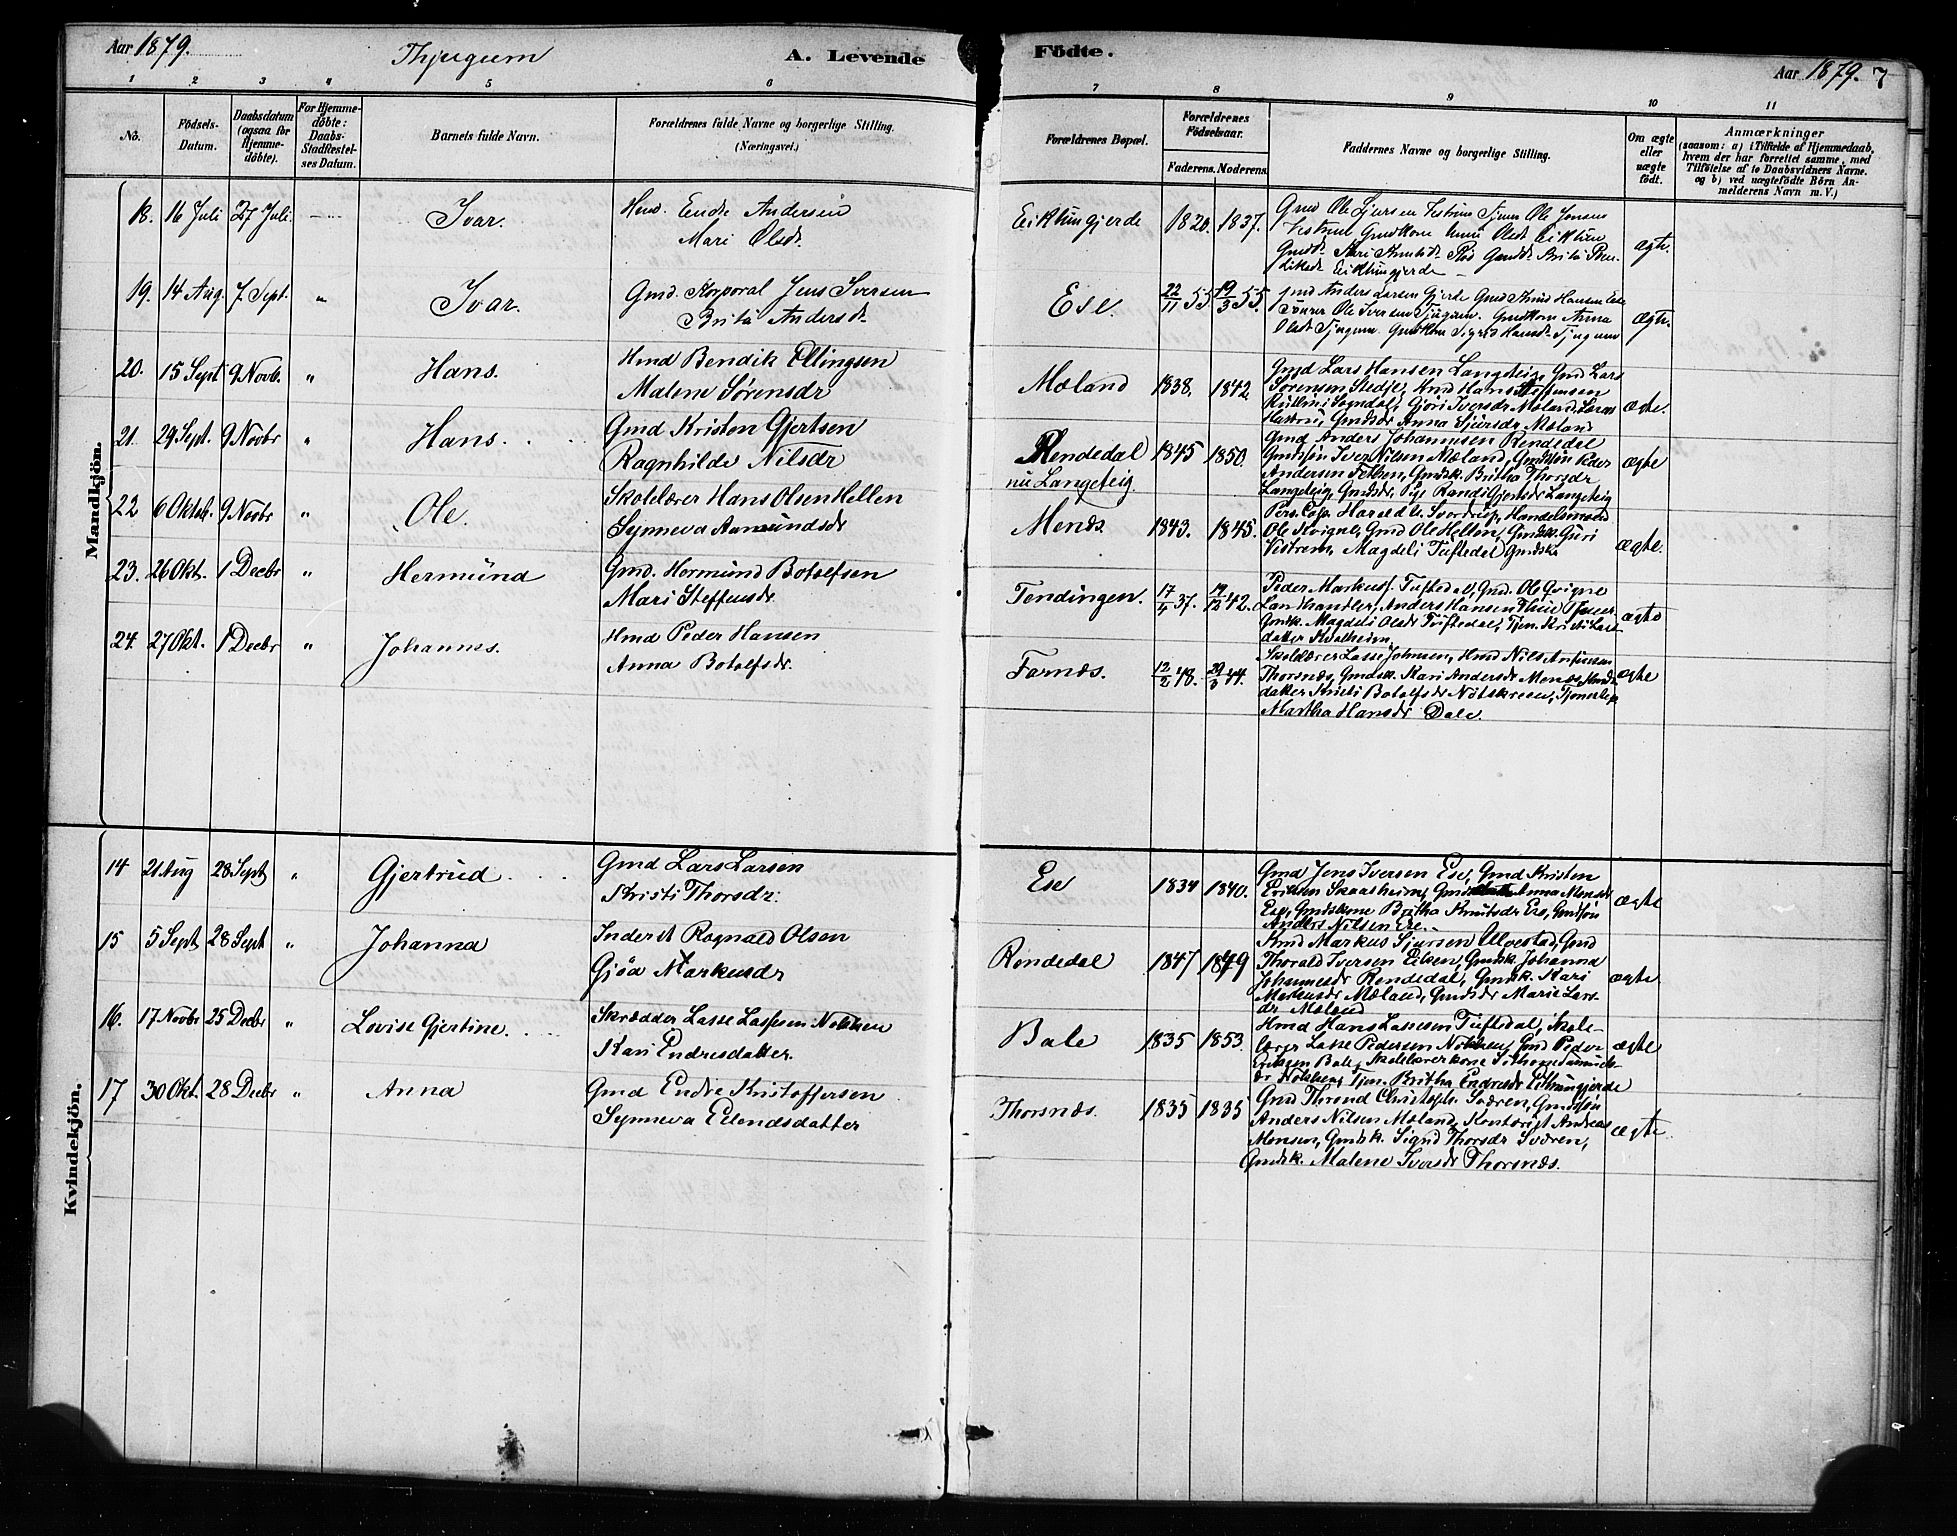 Aar 1879.
Thjugum
A. Levende
Födte.
Aar 1879. 7
1 2 3 4 5 6 7 8 9 10 11
No.
Födsels-Datum.
Daabsdatum (ogsaa for Hjemmedöbte).
For Hjemmedöbte: Daabs-Stadfæstelses Datum.
Barnets fulde Navn.
Forældrenes fulde Navne og borgerlige Stilling. (Næringsvei.)
Forældrenes Bopæl.
Forældrenes Födselsaar.
Faderens. Moderens.
Faddernes Navne og borgerlige Stilling.
Om ægte eller uægte födt.
Anmærkninger
(saasom: a) i Tilfælde af Hjemmedaab, hvem der har forrettet samme, med Tilföielse af to Daabsvidners Navne. og b) ved uægtefödte Börn Anmelderens Navn m. V.)
Mandkjön.
18. 16 Juli 27 Juli. Ivar. Endre Andersen
Mari Olsdr.
Eiktungjerde 1820. 1837. Gmd Ole Sjursen Vestrum Ole Jonsen
Vestrum Gmdkone Olsdr Eiktun
ægte.
19. 14 Aug. 7 Sept. " Ivar. Gmd. Korporal Jens Iversen
Brita Andersdr.
Ese. 22/11 55 19/3 55. Gmd Anders Larsen Gjerde Gmd Hansen Ese
Ole Iversen Tjugum. Gmdkone Anna
Olsdr Tjugum Gmdkone Sigrid Hansdr Tjugum
ægte.
20. 15 Sept 9 Novb. " Hans. Hmd Bendik Ellingsen
Malene Sørensdr
Mæland 1838. 1842. Gmd Lars Hansen Langeteig, Gmd Lars
Sørensen Stedje, Hmd Hans Steffensen
i Sogndal, Gjøri Iversdr Mæland,
Gmdsdr Anna Sjursdr Mæland
ægte.
21. 29 Sept. 9 Novbr " Hans. Gmd Kristen Gjertsen
Ragnhilde Nilsdr
Rendedal 1845 1850.
nu Langeteig.
Gmd Anders Johannesen Rendedal
Gmdsøn Iver Nilsen Mæland, Gmdsøn Peder
Andersen Feksen, Gmdsk. Britha Thorsdr
Langeteig, Gmdsdr, Pige Randi Gjertsdr Langeteig
ægte
22 6 Oktob. 9 Novbr " Ole. Skolelærer Hans Olsen Hellen
Synneva Aamundsdr
Menes 1843. 1845. Pers. Cap. Harald U. Sverdrup, Handelsmand
Ole Kvigne, Gmd Ole Hellen, Gmdsk. Guri
Vestrem, Magdeli Tuftedal Gmdsk.
ægte.
23. 26 Okt. 1 Decbr " Hermund Gmd. Hermund Botolfsen
Mari Steffensdr.
Tendingen. 37. 42. Peder Markus. Tuftedal, Gmd. Ole Qvigne
Landhandler, Anders Hansen Thue Tjener
Gmdsk. Magdeli Olsdr Tuftedal, Tjen. Kristi Lars-
datter Kvalheim.
ægte
24. 27 Okt. 1 Decbr " Johannes. Hmd Peder Hansen
Anna Botolfsdr.
Farnæs. 12/2 48. 44. Skolelærer Lasse Johnsen, Hmd Nils Anfinnsen
Thorsnæs, Gmdsk. Kari Andersdr Menes,
datter Kristi Botolfsdr Nötskreen, Tjenestep.
Martha Hansdr Dale.
ægte
Kvindekjön.
14 21 Aug 28 Sept " Gjertrud. Gmd Lars Larsen
Kristi Thorsdr.
Ese 1834 1840. Gmd Jens Iversen Ese, Gmd Kristen
Eriksen Skaasheim, Anna Monsdr
Ese, Gmdskone Britha Knutsdr Ese, Gmdsøn
Anders Nilsen Ese.
ægte
15 5 Sept 28 Sept " Johanna Inderst Ragnald Olsen
Gjöa Markusdr
Rendedal 1847 1849 Gmd Markus Sjursen Ulvestad, Gmd
Thorald Iversen Eiken, Gmdsk. Johanna
Johannesdr Rendedal, Gmdsk. Kari
Markusdr Mæland, Gmdsdr Marie Lars-
dr Mæland
ægte
16. 17 Novbr 25 Decbr " Lovise Gjertine. Skrædder Lasse Lassesen Nolsken
Kari Endresdatter.
Bale 1835 1853. Hmd Hans Lassesen Tuftedal, Skole-
lærer Lasse Pedersen, Gmd Peder
Eriksen Bale, Skolelærerkone
Tjen. Britha Endresdr Eiktungjerde
ægte
17 30 Okt. 28 Decbr " Anna Gmd Endre Kristoffersen
Synneva Erlendsdatter
Thorsnæs. 1835 1835 Gmd Thrond Christoph. Sværen, Gmdsøn
Anders Nilsen Mæland, Kontorist Andreas
Monsen, Gmdsk. Sigrid Thorsdr Sværen,
Gmdsk. Malene Iversdr Thorsnæs.
ægte.